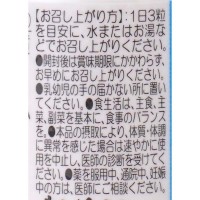 【お召し上がり方】:1日3粒
を目安に、水またはお湯な
どでお召し上がりください。
●開封後は賞味期限にかかわらず、
お早めにお召し上がりください。
●乳幼児の手の届かない所に置い
てください。●食生活は、主食、主
菜、副菜を基本に、食事のバランス
を。●本品の摂取により、体質・体調
に異常を感じた場合は速やかに使
用を中止し、医師の診断を受けてく
ださい。●薬を服用中、通院中、妊娠
中の方は、医師にご相談ください。